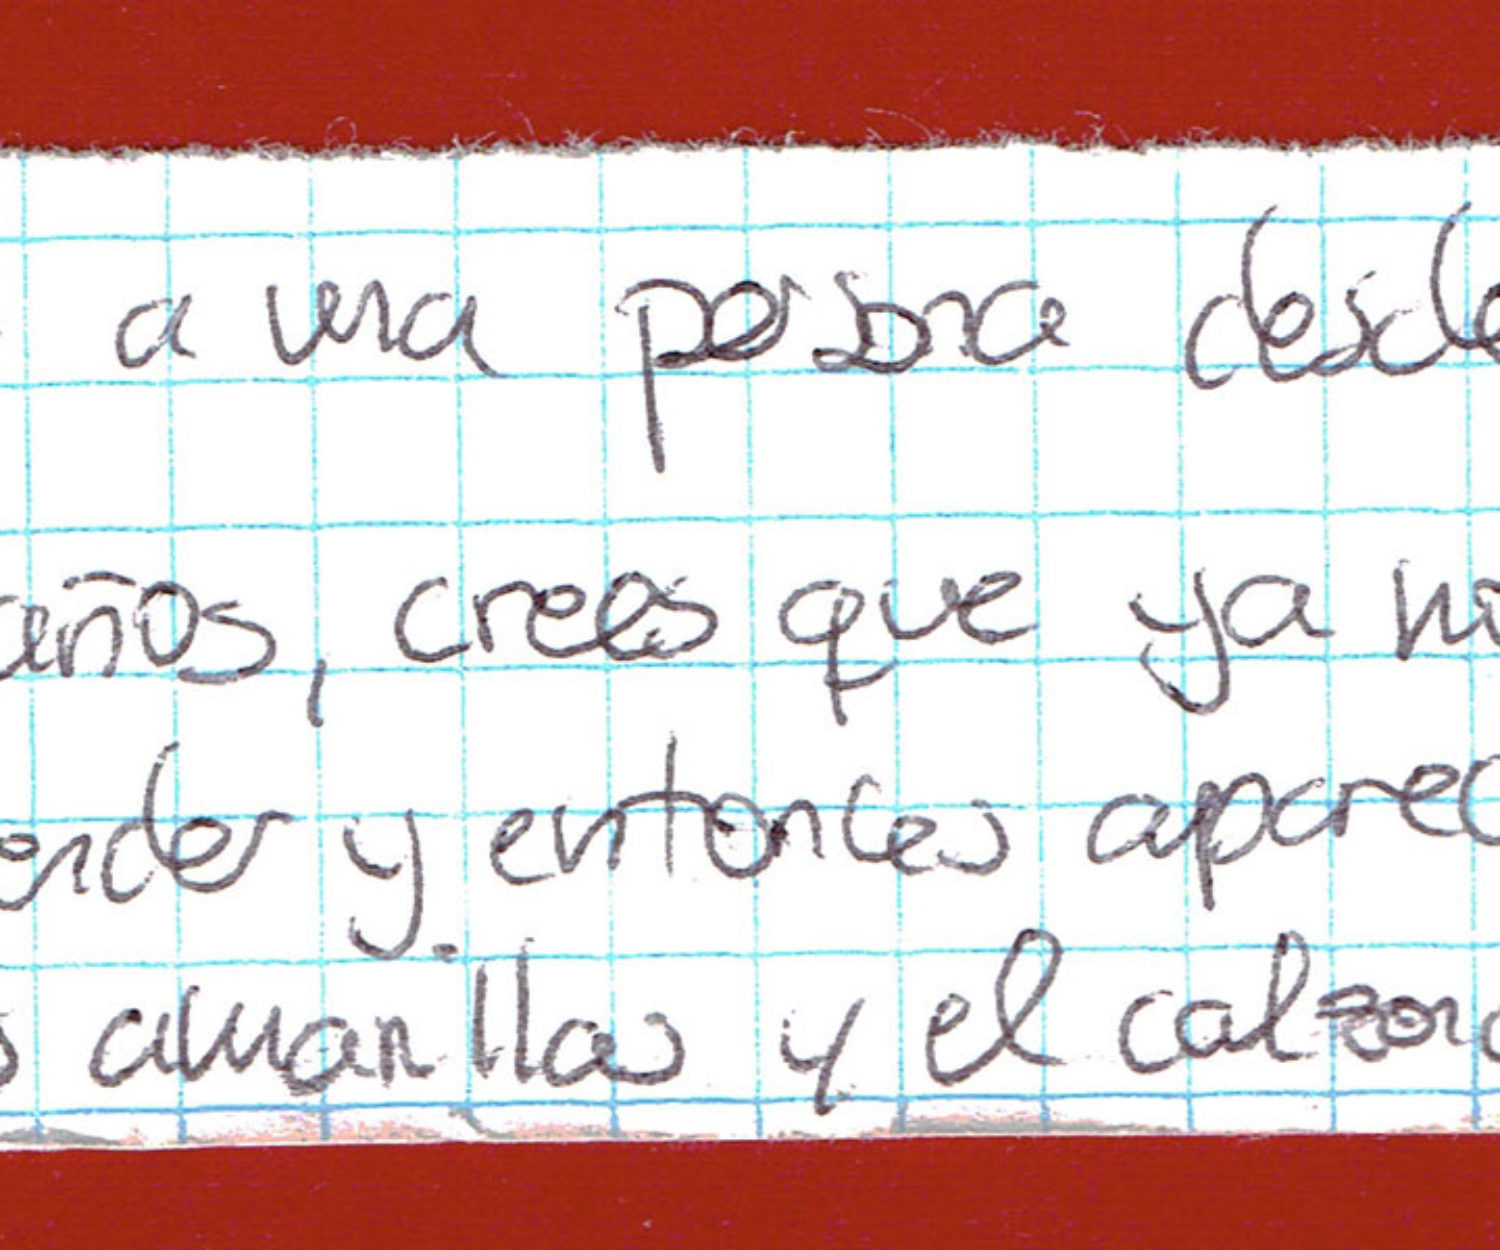 a una persona desde
años, crees que ya no
ender y entonces aparec
s amarillas y el calzon